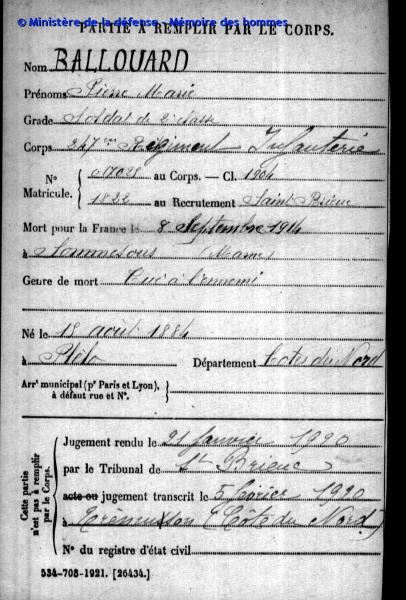 © Ministère de la défense - Mémoire des hommes
PARTIE À REMPLIR PAR LE CORPS.
Nom BALLOUARD
Prénoms Pierre Marie
Grade Soldat de 2e classe
Corps 247e Régiment Infanterie
N° Matricule. { 07028 au Corps. — Cl. 1904
1822 au Recrutement Saint Brieuc
Mort pour la France le 8 Septembre 1914
à Sommesous Marne
Genre de mort Tué à l'ennemi
Né le 18 août 1884
à Plélo Département Côtes du Nord
Arrt municipal (pr Paris et Lyon), à défaut rue et N°. {
Cette partie n'est pas à remplir par le Corps.
Jugement rendu le 21 Janvier 1920
par le Tribunal de St Brieuc
acte ou jugement transcrit le 5 février 1920
à Trémuson (Côtes du Nord)
N° du registre d'état civil
534-708-1921. [26434.]